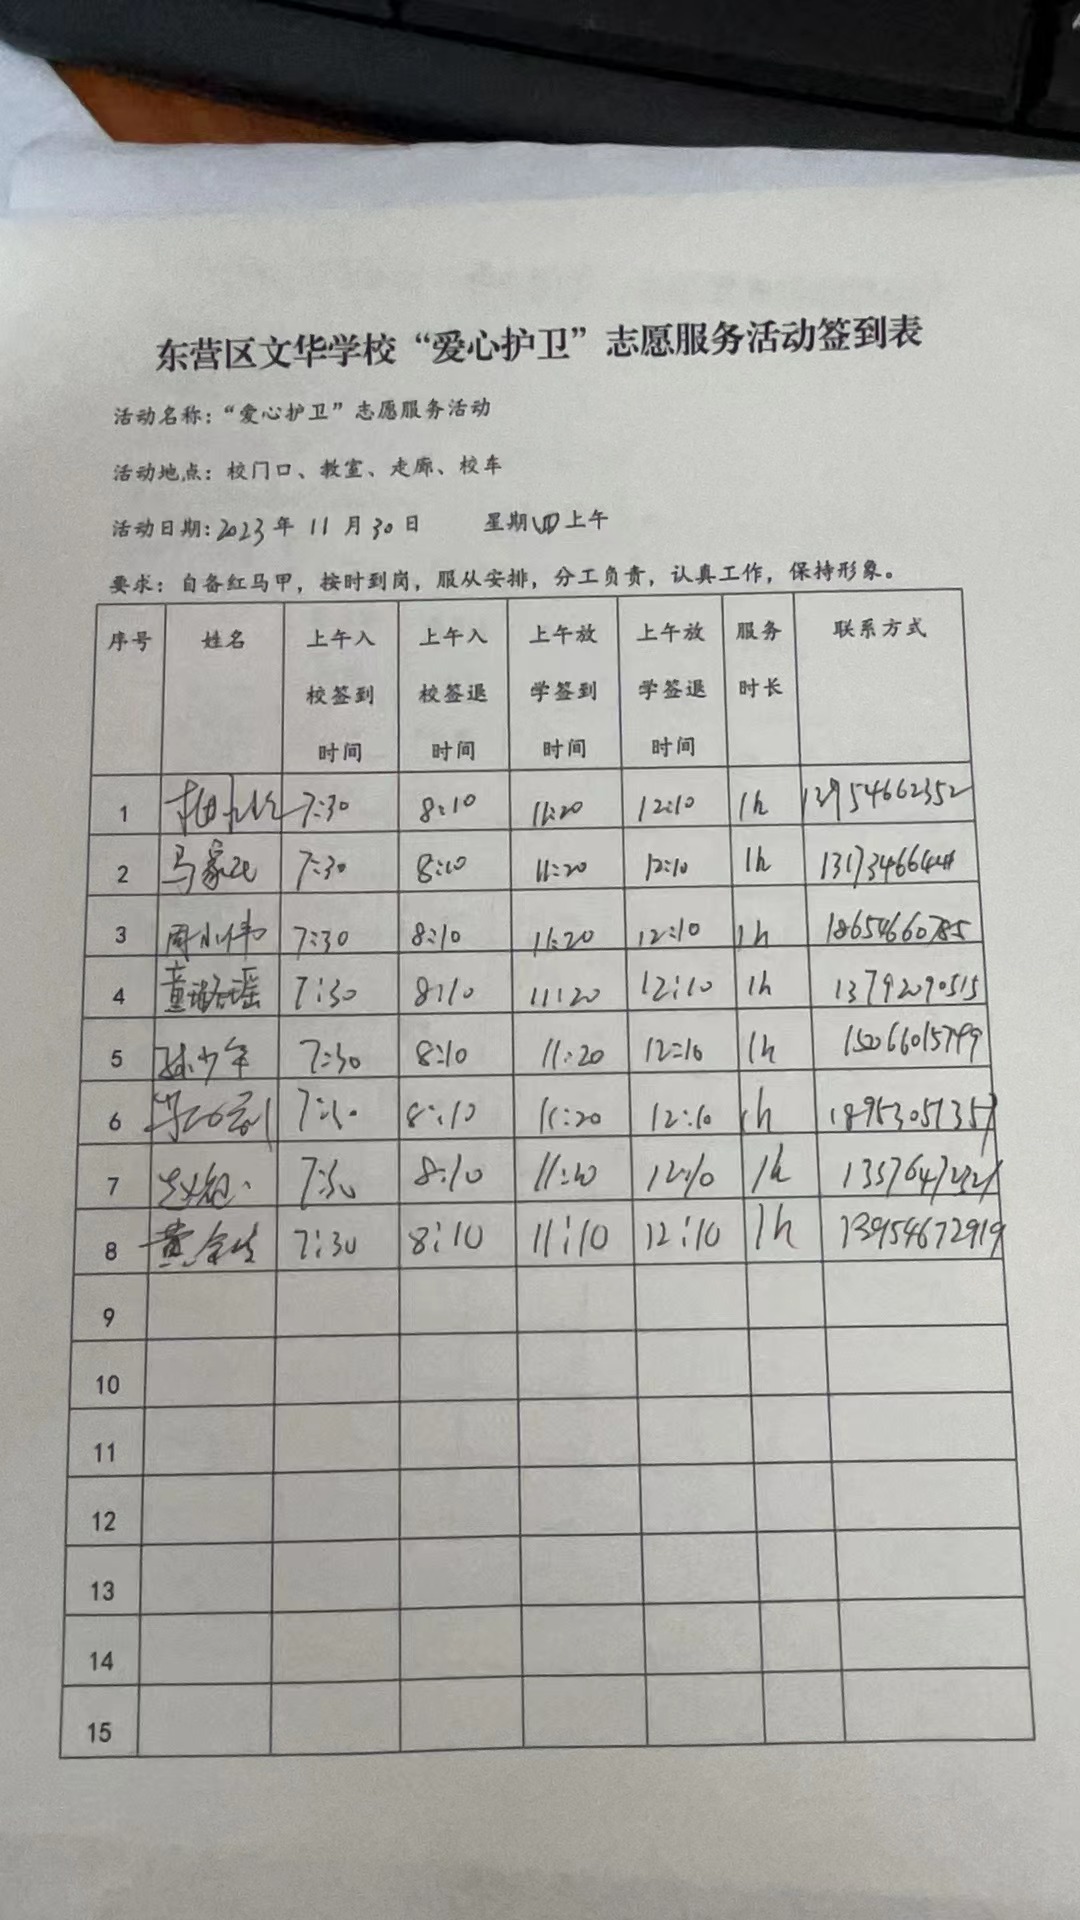 东营区文华学校“爱心护卫”志愿服务活动签到表
活动名称：“爱心护卫”志愿服务活动
活动地点：校门口、教室、走廊、校车
活动日期：2023年 11月30日 星期四上午
要求：自备红马甲，按时到岗，服从安排，分工负责，认真工作，保持形象。
序号 姓名 上午入校签到时间 上午入校签退时间 上午放学签到时间 上午放学签退时间 服务时长 联系方式
1 7:30 8:10 11:20 12:10 1h 13954662352
2 7:30 8:10 11:20 12:10 1h
3 周小伟 7:30 8:10 11:20 12:10 1h 18654660785
4 7:30 8:10 11:20 12:10 1h 13792090515
5 孙少华 7:30 8:10 11:20 12:10 1h 15206615799
6 8:10 11:20 12:10 1h
7 7:30 8:10 12:10 1h
8 黄金生 7:30 8:10 11:10 12:10 1h 13954672919
9
10
11
12
13
14
15